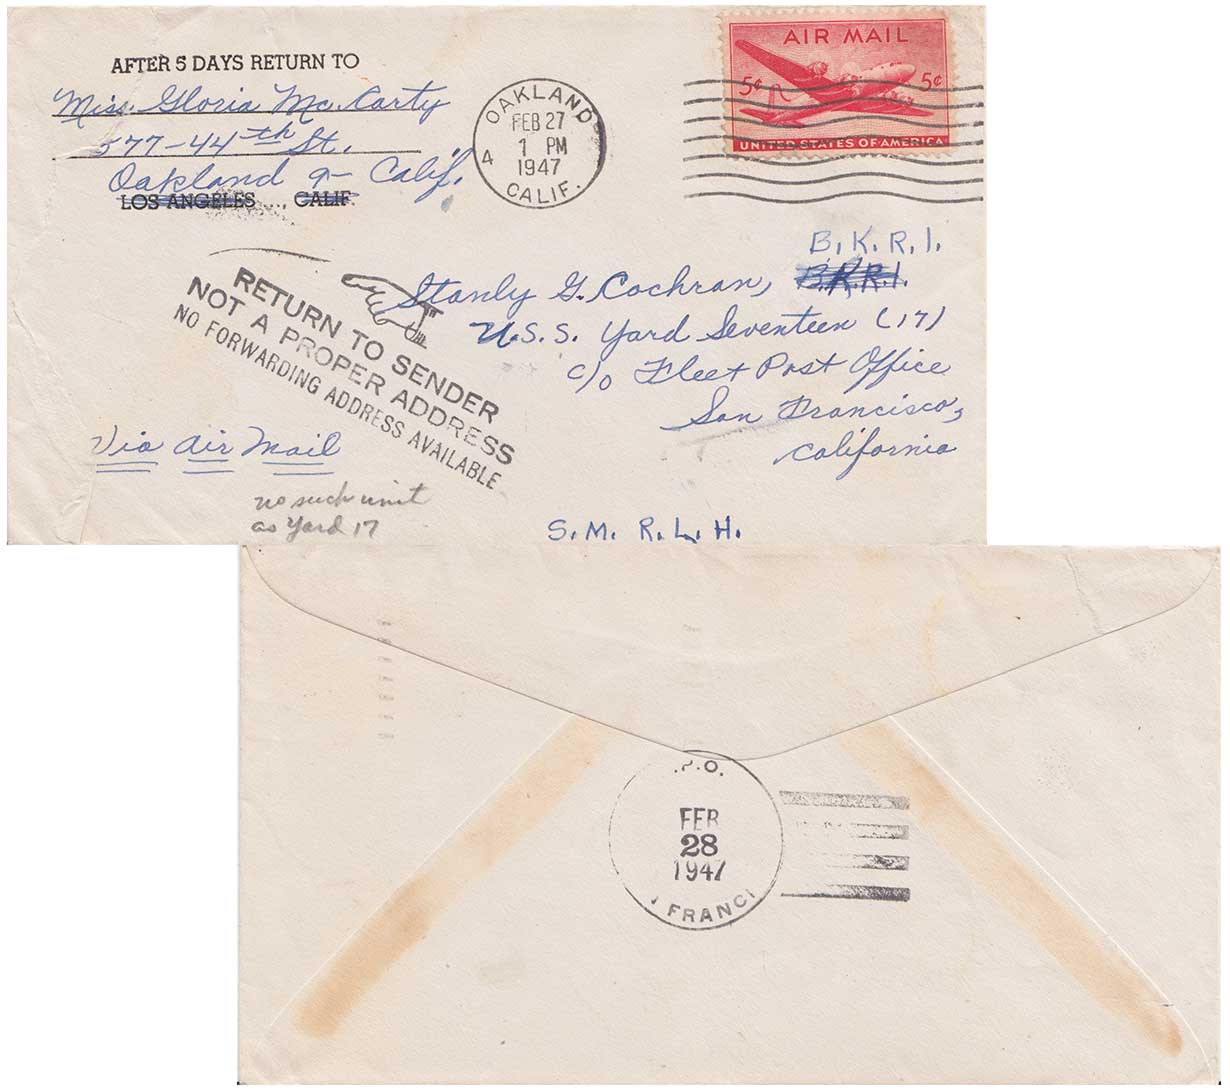 AFTER 5 DAYS RETURN TO
Miss. Gloria Mc. Carty
577-44th St.
Oakland 9- Calif.
LOS ANGELES ..., CALIF.
OAKLAND
FEB 27
1 PM
1947
4
CALIF.
AIR MAIL
5¢ 5¢
UNITED STATES OF AMERICA
B.K.R.I.
Stanly G. Cochran, B.R.R.I.
U.S.S. Yard Seventeen (17)
c/o Fleet Post Office
San Francisco,
California
RETURN TO SENDER
NOT A PROPER ADDRESS
NO FORWARDING ADDRESS AVAILABLE
Via Air Mail
no such unit
as Yard 17
S.M. R.L.H.
.P.O.
FEB
28
1947
FRANCI